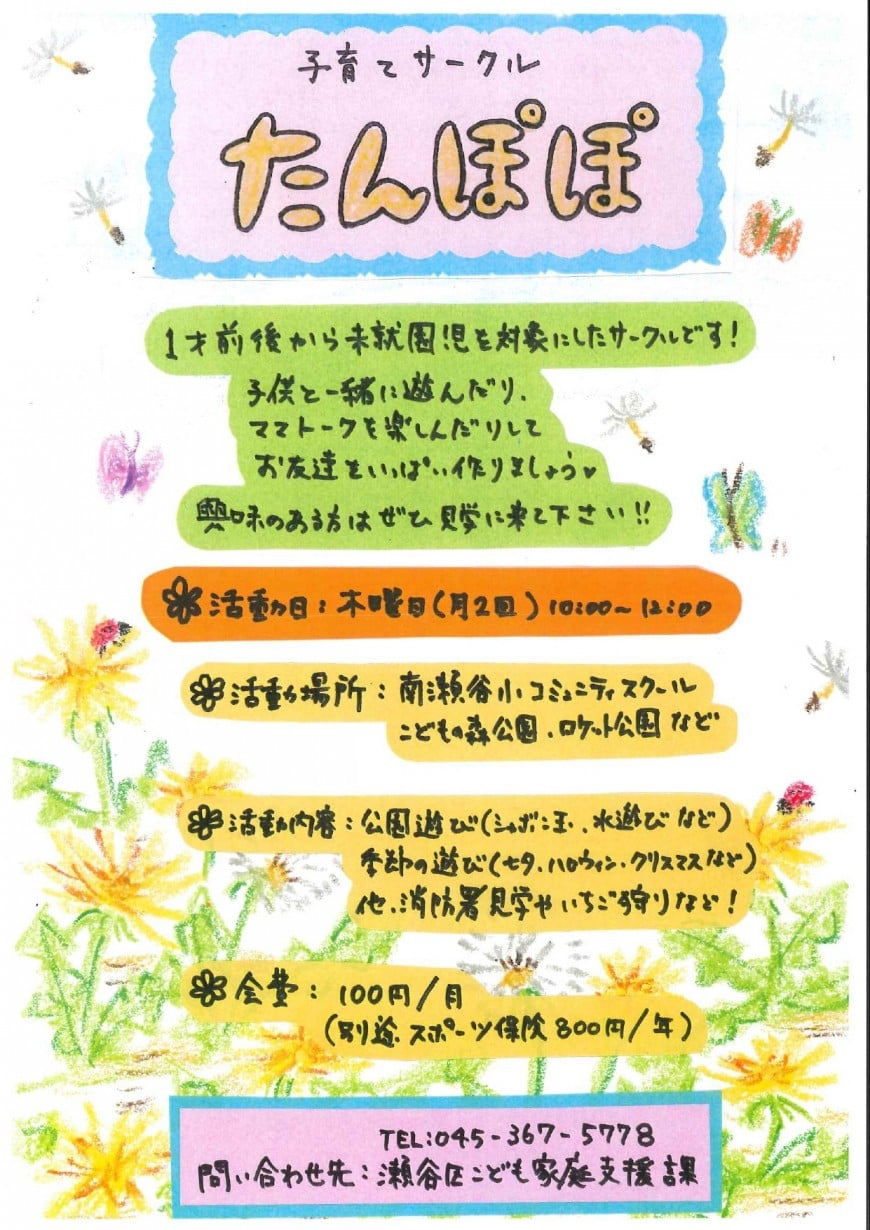 子育てサークル
たんぽぽ
1才前後から未就園児を対象にしたサークルです!
子供と一緒に遊んだり、
ママトークを楽しんだりして
お友達をいっぱい作りましょう♥
興味のある方はぜひ見学に来て下さい!!
活動日:木曜日(月2回)10:00~12:00
活動場所:南瀬谷小コミュニティスクール
こどもの森公園、ロケット公園など
活動内容:公園遊び(シャボン玉、水遊びなど)
季節の遊び(七夕、ハロウィン、クリスマスなど)
他、消防署見学やいちご狩りなど!
会費:100円/月
(別途スポーツ保険800円/年)
TEL:045-367-5778
問い合わせ先:瀬谷区こども家庭支援課